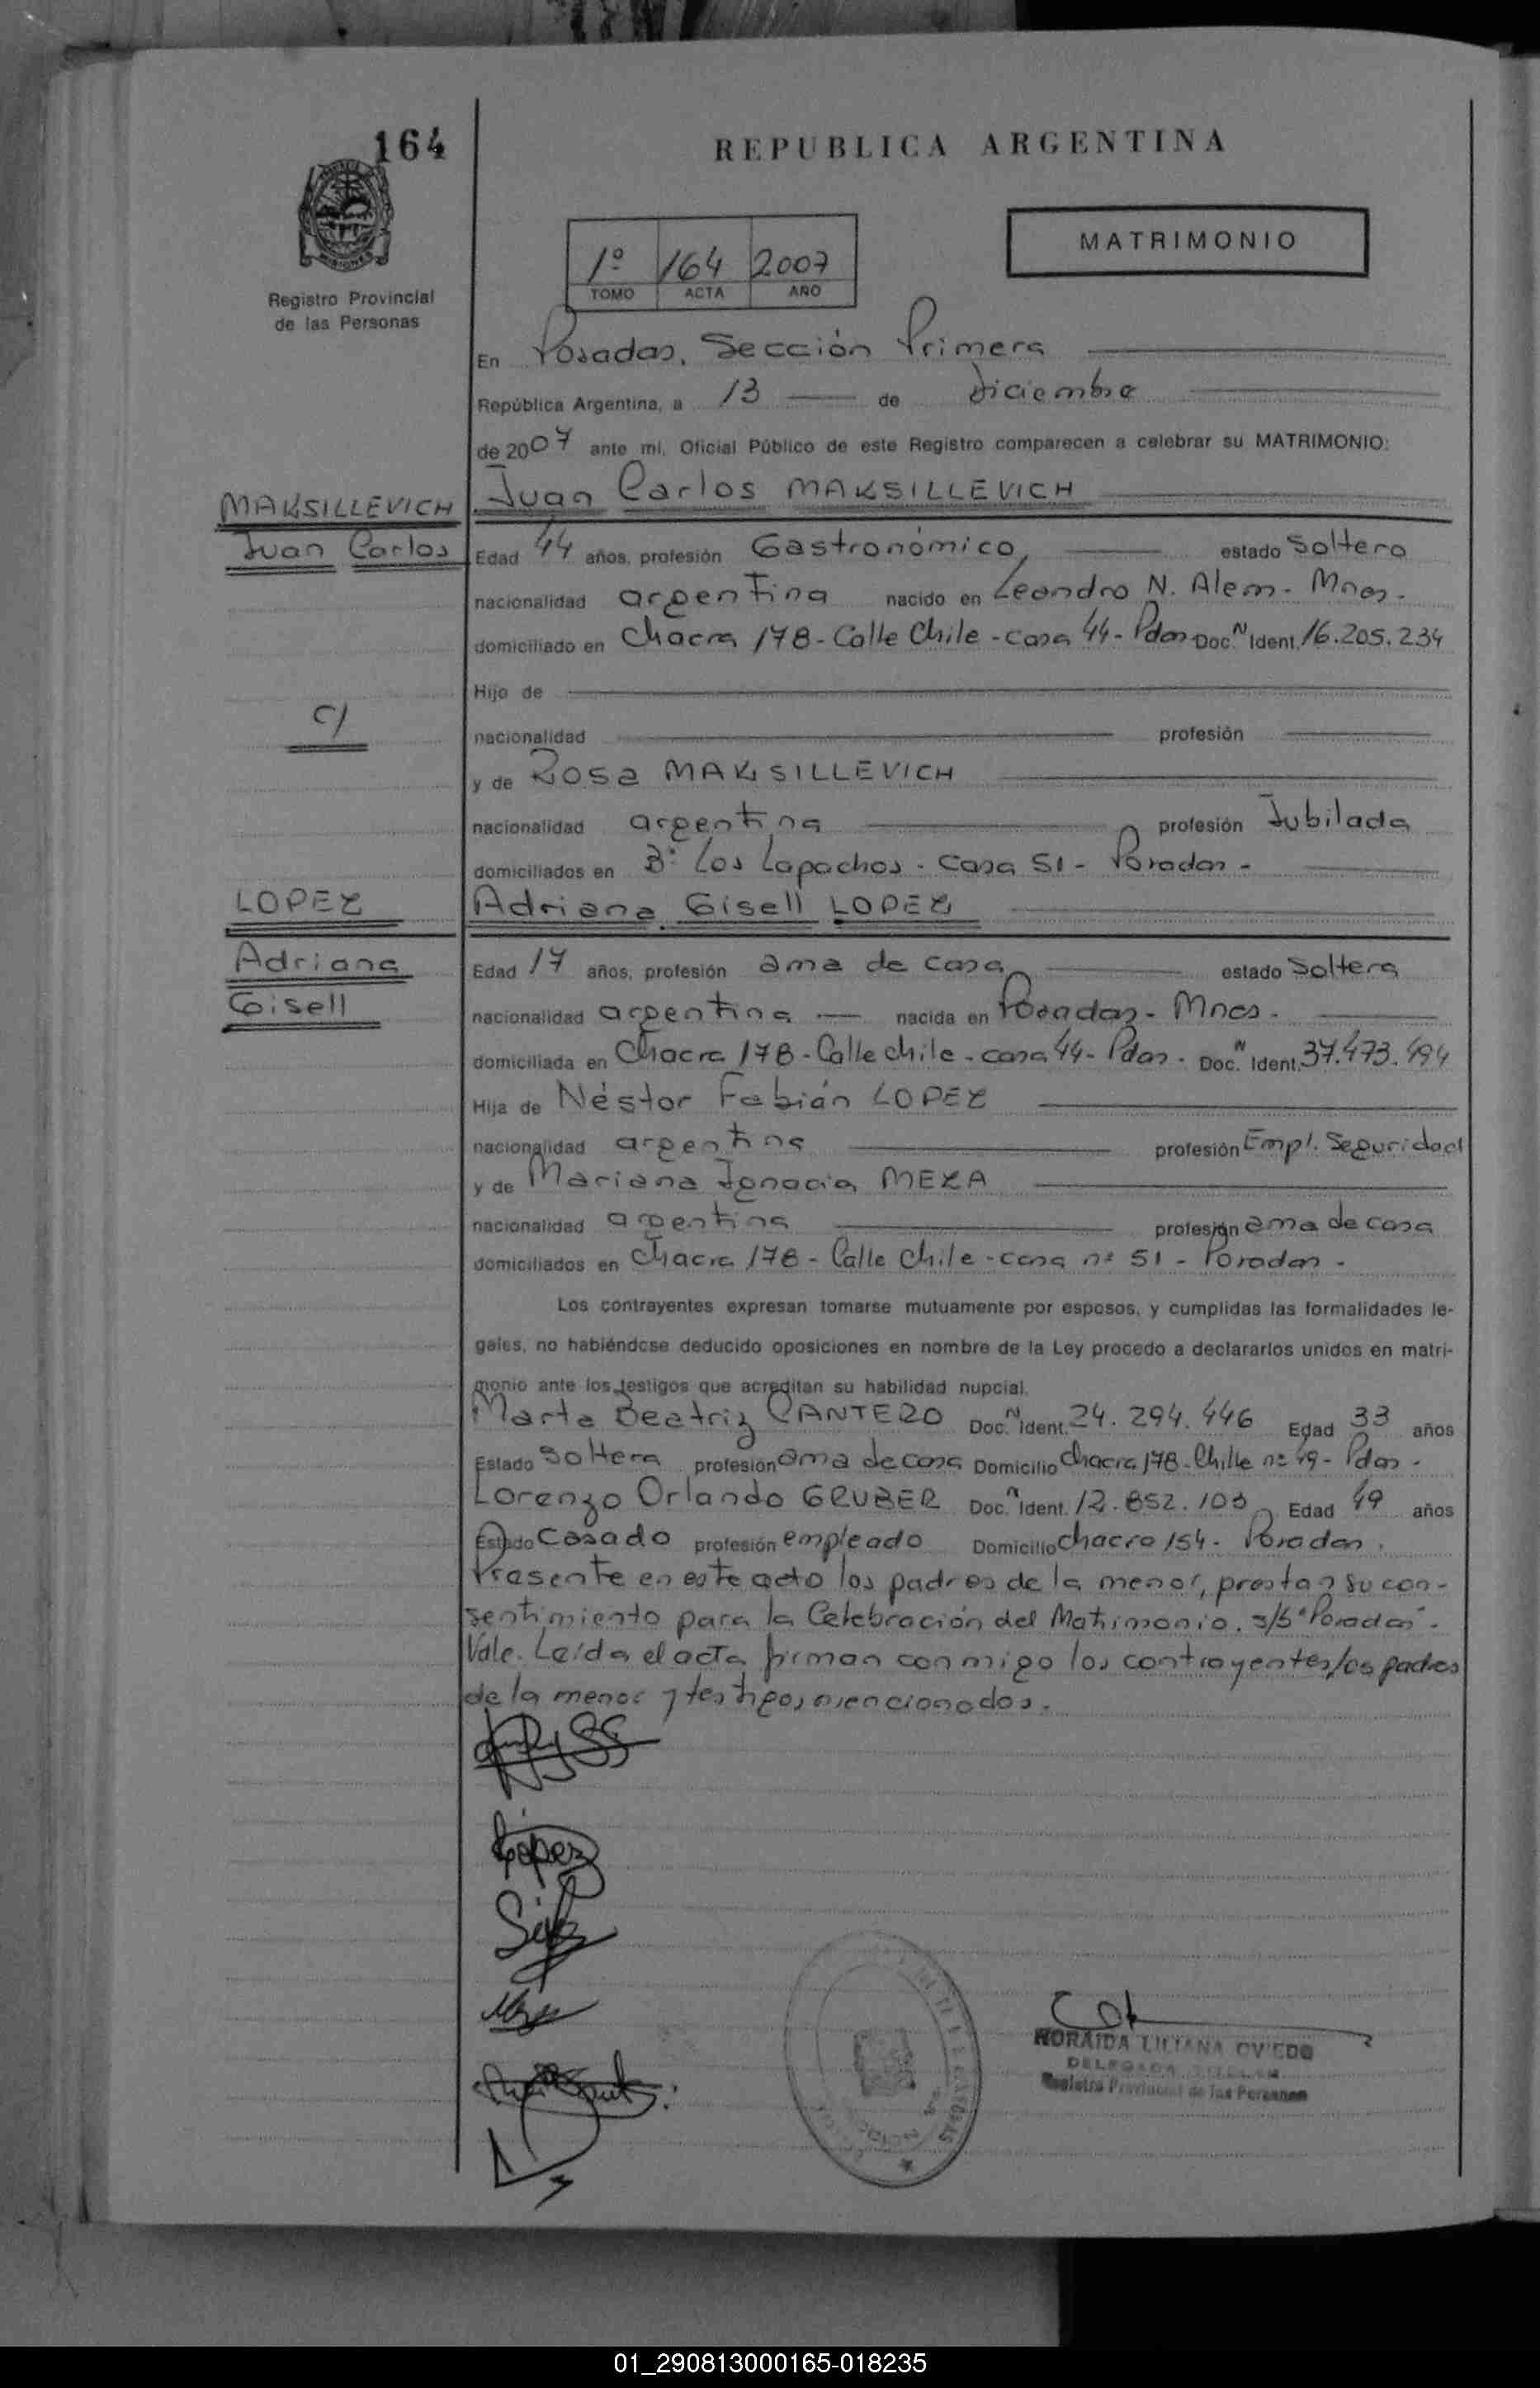 164
REPUBLICA ARGENTINA
MISIONES
Registro Provincial
de las Personas
1º 164 2007
TOMO ACTA AÑO
MATRIMONIO
En Posadas, Sección Primera
República Argentina, a 13 de diciembre
de 2007 ante mí, Oficial Público de este Registro comparecen a celebrar su MATRIMONIO:
MAKSILLEVICH Juan Carlos MAKSILLEVICH
Juan Carlos Edad 44 años, profesión Gastronómico, estado Soltero
nacionalidad argentina nacido en Leandro N. Alem - Mnes.
domiciliado en Chacra 178 - Calle Chile - casa 44 - Pdas Doc. N Ident. 16.205.234
Hijo de
C/
nacionalidad profesión
y de Rosa MAKSILLEVICH
nacionalidad argentina profesión Jubilada
domiciliados en Bº Los Lapachos - casa 51 - Posadas -
LOPEZ Adriana Gisell LOPEZ
Adriana Edad 17 años, profesión ama de casa estado Soltera
Gisell nacionalidad argentina nacida en Posadas - Mnes.
domiciliada en Chacra 178 - Calle chile - casa 44 - Pdas - Doc. N Ident. 37.473.494
Hija de Néstor Fabián LOPEZ
nacionalidad argentina profesión Empl. Seguridad
y de Mariana Ignacia MEZA
nacionalidad argentina profesión ama de casa
domiciliados en Chacra 178 - Calle Chile - casa nº 51 - Posadas -
Los contrayentes expresan tomarse mutuamente por esposos, y cumplidas las formalidades le-
gales, no habiéndose deducido oposiciones en nombre de la Ley procedo a declararlos unidos en matri-
monio ante los testigos que acreditan su habilidad nupcial.
Marta Beatriz CANTERO Doc. N Ident. 24.294.446 Edad 33 años
Estado Soltera profesión ama de casa Domicilio Chacra 178 - nº 49 - Pdas -
Lorenzo Orlando GRUBER Doc. N Ident. 12.852.103 Edad 49 años
Estado Casado profesión empleado Domicilio chacra 154 - Posadas.
Presente en este acto los padres de la menor, prestan su con-
sentimiento para la Celebración del Matrimonio. s/b "Posadas" -
Vale. Leída el acta firman conmigo los contrayentes, los padres
de la menor y testigos mencionados.
Lopez
NORAIDA LILIANA OVIEDO
DELEGADA TITULAR
Registro Provincial de las Personas
01_290813000165-018235